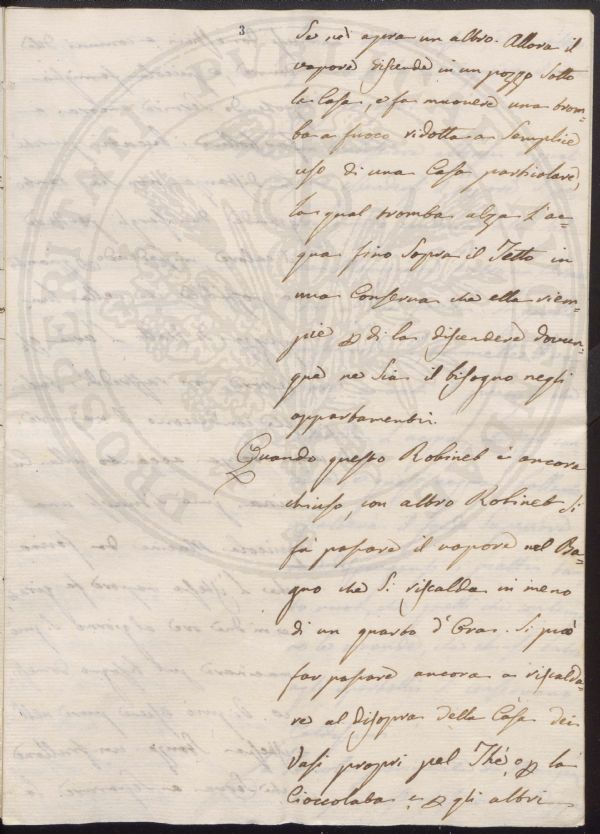 3
Se ne apera un altro. Allora il
vapore discende in un pozzo sotto
la Casa, e fa muovere una trom=
ba a fuoco ridotta a semplice
uso di una Casa particolare,
la qual tromba alza l'ac=
qua fino sopra il Tetto in
una Conserva che ella riem=
pie p di la discendere dovun=
que ne sia il bisogno negli
appartamenti.
Quando questo Robinet è ancora
chiuso, con altro Robinet si
fà passare il vapore nel Ba=
gno che si riscalda in meno
di un quarto d'Ora. Si può
far passare ancora a riscalda=
re al disopra della Casa dei
Vasi propri pel Thè, o p la
Cioccolata e p gli altri